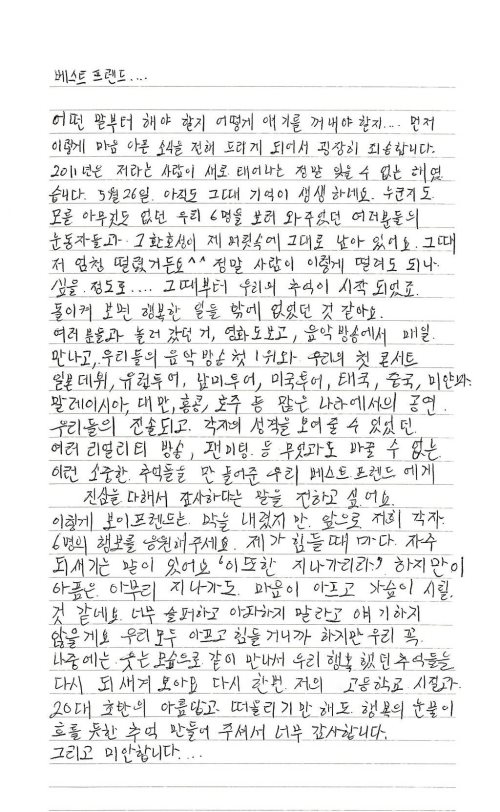 베스트 프렌드....
어떤 말부터 해야 할지 어떻게 얘기를 꺼내야 할지.... 먼저
이렇게 마음 아픈 소식을 전해 드리게 되어서 굉장히 죄송합니다.
2011년은 저라는 사람이 새로 태어나는 정말 잊을 수 없는 해였
습니다. 5월 26일. 아직도 그때 기억이 생생하네요. 누군지도
모를 아무것도 없던 우리 6명을 보러 와주었던 여러분들의
눈동자들과 그 환호성이 제 머릿속에 그대로 남아 있어요. 그때
저 엄청 떨렸거든요^^ 정말 사람이 이렇게 떨려도 되나
싶을 정도로.... 그때부터 우리의 추억이 시작 되었죠.
돌이켜 보면 행복한 일들 밖에 없었던 것 같아요.
여러분들과 놀러 갔던 거, 영화도 보고, 음악방송에서 매일
만나고, 우리들의 음악방송 첫 1위와 우리의 첫 콘서트
일본 데뷔, 유럽투어, 남미투어, 미국투어, 태국, 중국, 미얀마,
말레이시아, 대만, 홍콩, 호주 등 많은 나라에서의 공연.
우리들의 진솔되고 각자의 성격을 보여줄 수 있었던
여러 리얼리티 방송, 팬미팅 등 무엇과도 바꿀 수 없는
이런 소중한 추억들을 만들어준 우리 베스트 프렌드에게
진심을 다해서 감사하다는 말을 전하고 싶어요.
이렇게 보이프렌드는 막을 내렸지만 앞으로 저희 각자
6명의 행보를 응원해주세요. 제가 힘들 때마다 자주
되새기는 말이 있어요 "이 또한 지나가리라" 하지만 이
아픔은 아무리 지나가도 마음이 아프고 가슴이 시릴
것 같네요. 너무 슬퍼하고 아파하지 말라고 얘기하지
않을게요 우리 모두 아프고 힘들거니까 하지만 우리 꼭
나중에는 웃는 모습으로 같이 만나서 우리 행복했던 추억들을
다시 되새겨 보아요 다시 한번 저의 고등학교 시절과
20대 초반의 아름답고 떠올리기만 해도 행복의 눈물이
흐를 듯한 추억 만들어 주셔서 너무 감사합니다.
그리고 미안합니다....